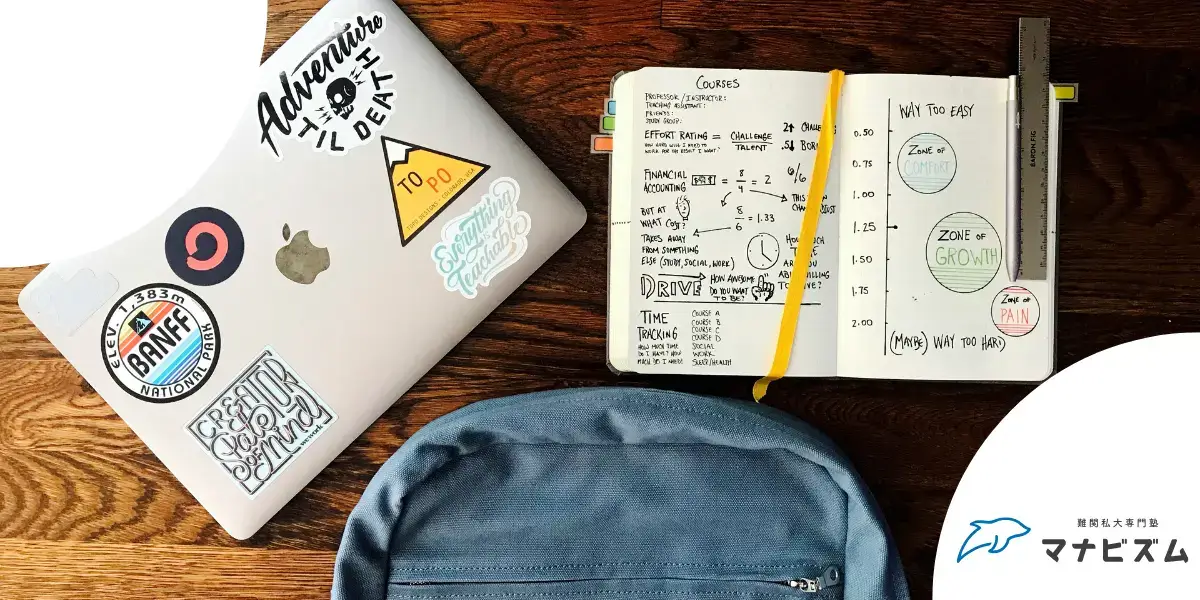 Adventure
TIL DEATH
TO PO
TOPO DESIGNS · COLORADO, USA
Everything
is
Teachable
ELEV. 1,383m
BANFF
NATIONAL PARK
CREATOR
State
OF Mind
wework
COURSES
PROFESSOR / INSTRUCTOR:
TEACHING ASSISTANT:
FRIENDS:
STUDY GROUP:
EFFORT RATING = CHALLENGE
TALENT
HOW HARD WILL I NEED TO
WORK FOR THE RESULT I WANT?
2↑
.5↓
FINANCIAL
ACCOUNTING
= 8/4 = 2
6/6
8/6 = 1.33
THIS
BUT AT
WHAT COST?
TAKES AWAY
FROM SOMETHING
ELSE (STUDY, SOCIAL, WORK)
DRIVE
HOW AWESOME
DO YOU WANT
TO BE?
TIME
TRACKING
HOW MUCH TIME
DO I HAVE? HOW
MUCH DO I NEED?
COURSE A
COURSE B
COURSE C
COURSE D
SOCIAL
WORK
SLEEP/HEALTH
WAY TOO EASY
0.50
0.75
1.00
1.25
1.50
1.75
2.00
ZONE OF
COMFORT
ZONE OF
GROWTH
ZONE OF
PAIN
(MAYBE) WAY TOO HARD
BARON FIG
難関私大専門塾
マナビズム